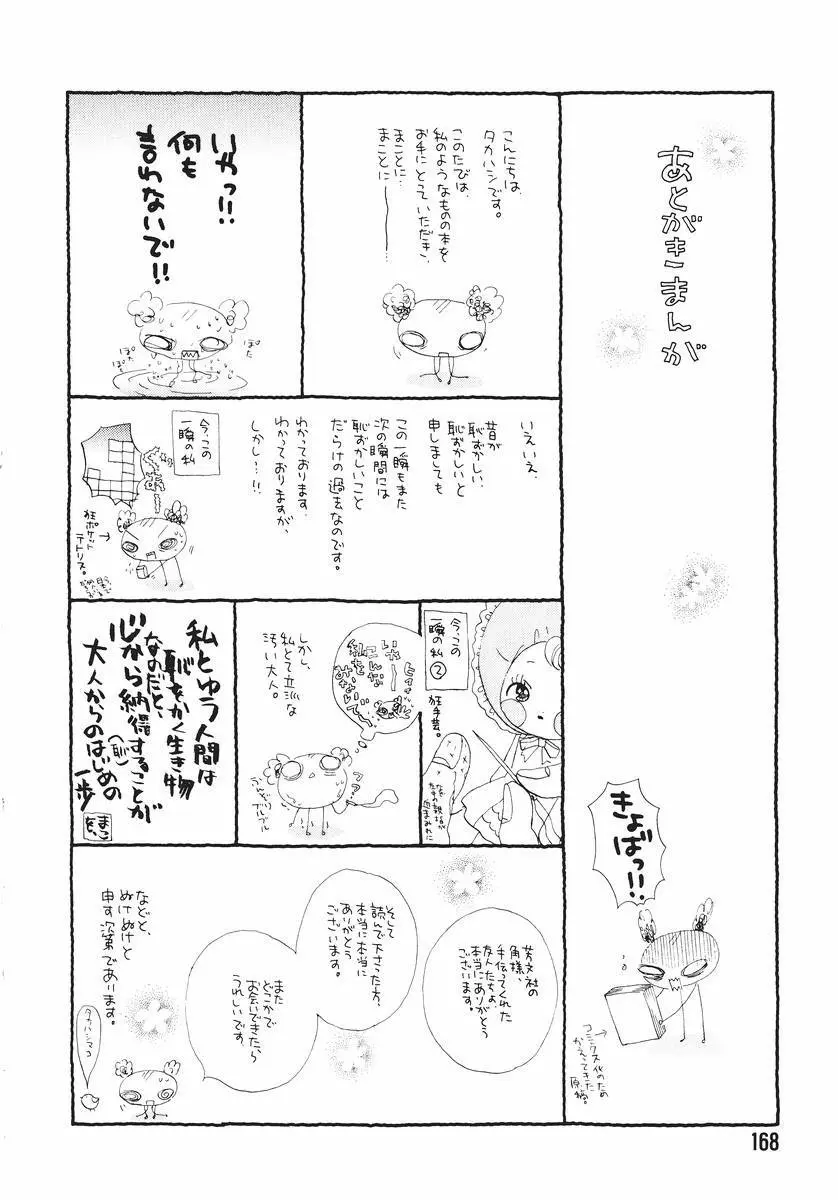 あとがきまんが
きょばっ!!
コミックス化のため
かえってきた
原稿。
こんにちは、
タカハシです。
このたびは、
私のようなものの本を
お手にとっていただき、
まことに…
まことに
いやっ!!
何も
言わないで!!
ぽた
ぽた
ぽた
いえいえ、
昔が
恥ずかしい、
恥ずかしいと
申しましても
この一瞬もまた
次の瞬間には
恥ずかしいこと
だらけの過去なのです。
わかっております、
わかっておりますが、
しかし…!!
今、この
一瞬の私
狂ポケット
テトリス。
今、この
一瞬の私②
狂手芸。
しかし、
私とて立派な
汚い大人。
いやー
こんな
私を
みないで
私とゆう人間は
恥をかく生き物
なのだと、
心から納得することが
大人からのはじめの
一歩
(恥)
まこ
を。
芳文社の
角様、
手伝ってくれた
友人たちよ、
本当にありがとう
ございます。
そして
読んで下さった方、
本当に本当に
ありがとう
ございます。
また
どこかで
お会いできたら
うれしいです。
などと、
ぬけぬけと
申す次第であります。
タカハシマコ
168